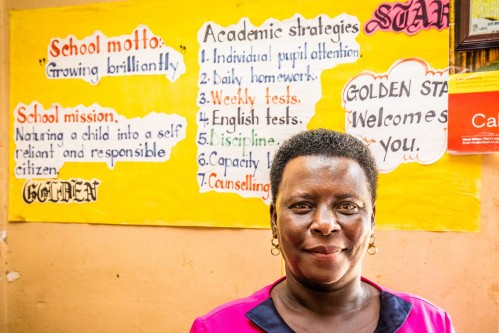 STAR
School motto:
"Growing brilliantly"
Academic strategies
1. Individual pupil attention.
2. Daily homework.
3. Weekly tests.
4. English tests.
5. Discipline.
6. Capacity
7. Counselling
School mission.
Naturing a child into a self
reliant and responsible
citizen.
GOLDEN
GOLDEN STA
Welcomes
you.
Cal